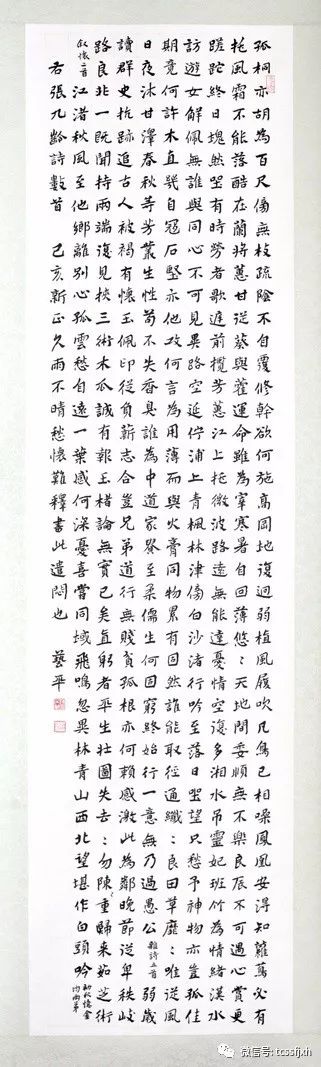 孤桐亦胡為百尺傍無枝疏陰不自覆修幹欲何施高岡地復迥弱植風屢吹凡鳥已相噪鳳凰安得知蘿蔦必有
托風霜不能落酷在蘭將蕙甘從葵與藿運命雖為宰寒暑自回薄悠〻天地間委順無不樂良辰不可遇心賞更
蹉跎終日塊然坐有時勞者歌遲前攬芳蕙江上托微波路遠無能達憂情空復多湘水吊靈妃班竹為情緒漢水
訪遊女解佩無誰與同心不可見異路空延佇浦上青楓林津傍白沙渚行吟至落日坐望只愁予神物亦豈孤佳
期竟何許木直幾自寇石堅亦他攻何言為用薄而與火膏同物累有固然誰能取徑通纖〻良田草靡〻唯從風
日夜沐甘澤春秋等芳叢生性苟不失香臭誰為中道家貴至柔儒生何固窮終始行一意無乃過愚公 雜詩五首 弱歲
讀群史抗跡追古人被褐有懷玉佩印從負薪志合豈兄弟道行無賤貧孤根亦何賴感激此為鄰晚節從卑秩岐
路良非一既聞持兩端復見挾三術木瓜誠有報玉楮論無實已矣直躬者平生壯圖失去〻勿陳重歸來茹芝術
敘懷二首 江渚秋風至他鄉離別心孤雲愁自遠一葉感何深憂喜嘗同域飛鳴忽異林青山西北望堪作白頭吟 初秋憶金均兩弟
右張九齡詩數首 己亥新正久雨不晴愁懷難釋書此遣悶也 藝平
微信号: tcssfjxh